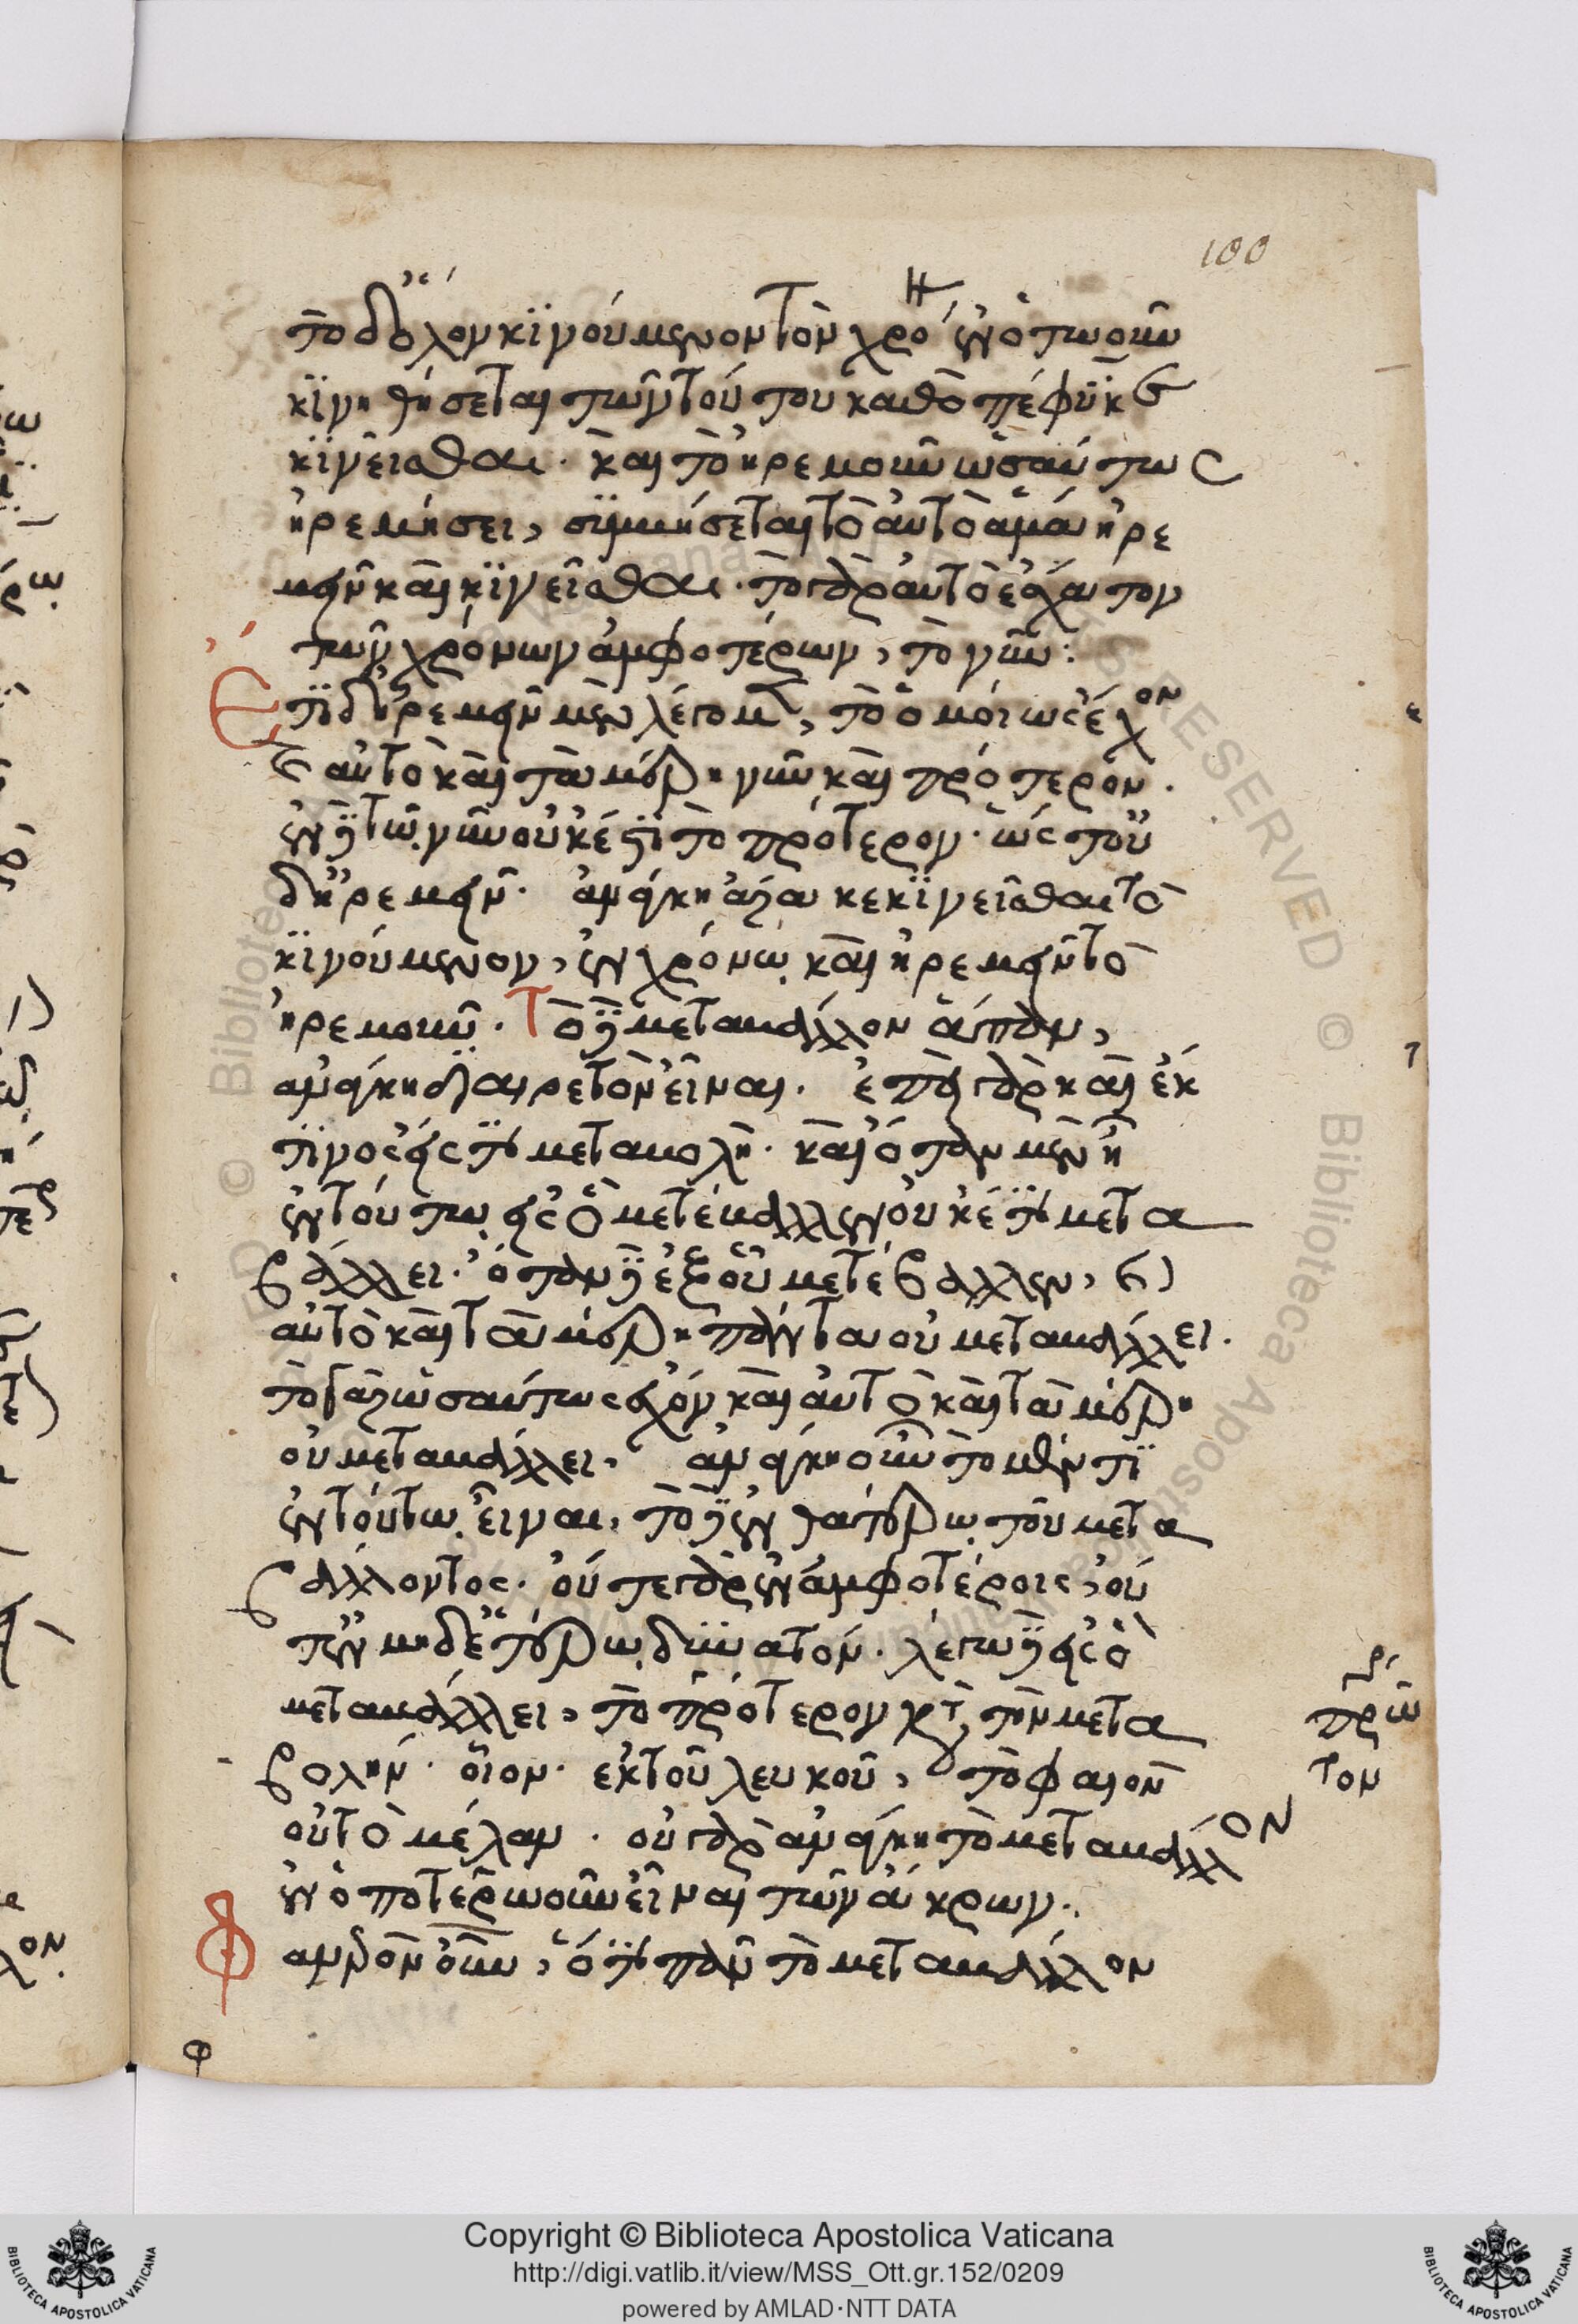 100
τὸ δ' ὅλον κινούμενον τὸν χρό ἐν ὁτωοῦν
κινηθήσεται τῶν τούτου καθὸ πέφυκε
κινεῖσθαι. καὶ τὸ ἠρεμοῦν ὡσαύτως
ἠρεμήσει, συμβήσεται τὸ αὐτὸ ἅμα ἠρε
μεῖν καὶ κινεῖσθαι. τὸ γὰρ αὐτὸ ἔσχατον
τῶν χρόνων ἀμφοτέρων, τὸ νῦν:
Ἔτι δ' ἠρεμεῖν μὲν λέγομεν, τὸ ὁμοίως ἔχον
καὶ αὐτὸ καὶ τὰ μέρη νῦν καὶ πρότερον.
ἐν δὲ τῷ νῦν οὐκ ἔστι τὸ πρότερον. ὥστ' οὐ
δ' ἠρεμεῖν. ἀνάγκη ἄρα κεκινεῖσθαι τὸ
κινούμενον, ἐν χρόνῳ καὶ ἠρεμεῖν τὸ
ἠρεμοῦν. Τὸ δὲ μεταβάλλον ἅπαν,
ἀνάγκη διαιρετὸν εἶναι. ἐπεὶ γὰρ καὶ ἔκ
τινος εἴς τι μεταβολή. καὶ ὅταν μὲν ᾖ
ἐν τούτῳ εἰς ὃ μετέβαλλεν οὐκέτι μετα
βάλλει. ὅταν δὲ ἐξ οὗ μετέβαλλεν, καὶ
αὐτὸ καὶ τὰ μέρη πάντα οὐ μεταβάλλει.
τὸ γὰρ ὡσαύτως ἔχον καὶ αὐτὸ καὶ τὰ μέρη
οὐ μεταβάλλει. ἀνάγκη οὖν τὸ μέν τι
ἐν τούτῳ εἶναι, τὸ δὲ ἐν θατέρῳ τοῦ μετα
βάλλοντος. οὔτε γὰρ ἐν ἀμφοτέροις, οὔ
τ' ἐν μηδετέρῳ δυνατόν. λέγω δὲ εἰς ὃ
μεταβάλλει, τὸ πρότερον κατὰ τὴν μετα
πρῶ
τον
βολήν. οἷον. ἐκ τοῦ λευκοῦ, τὸ φαιὸν
οὐ τὸ μέλαν. οὐ γὰρ ἀνάγκη τὸ μεταβάλλον
ἐν ὁποτερωοῦν εἶναι τῶν ἄκρων.
Φανερὸν οὖν, ὅτι πᾶν τὸ μεταβάλλον
Copyright © Biblioteca Apostolica Vaticana
http://digi.vatlib.it/view/MSS_Ott.gr.152/0209
powered by AMLAD·NTT DATA